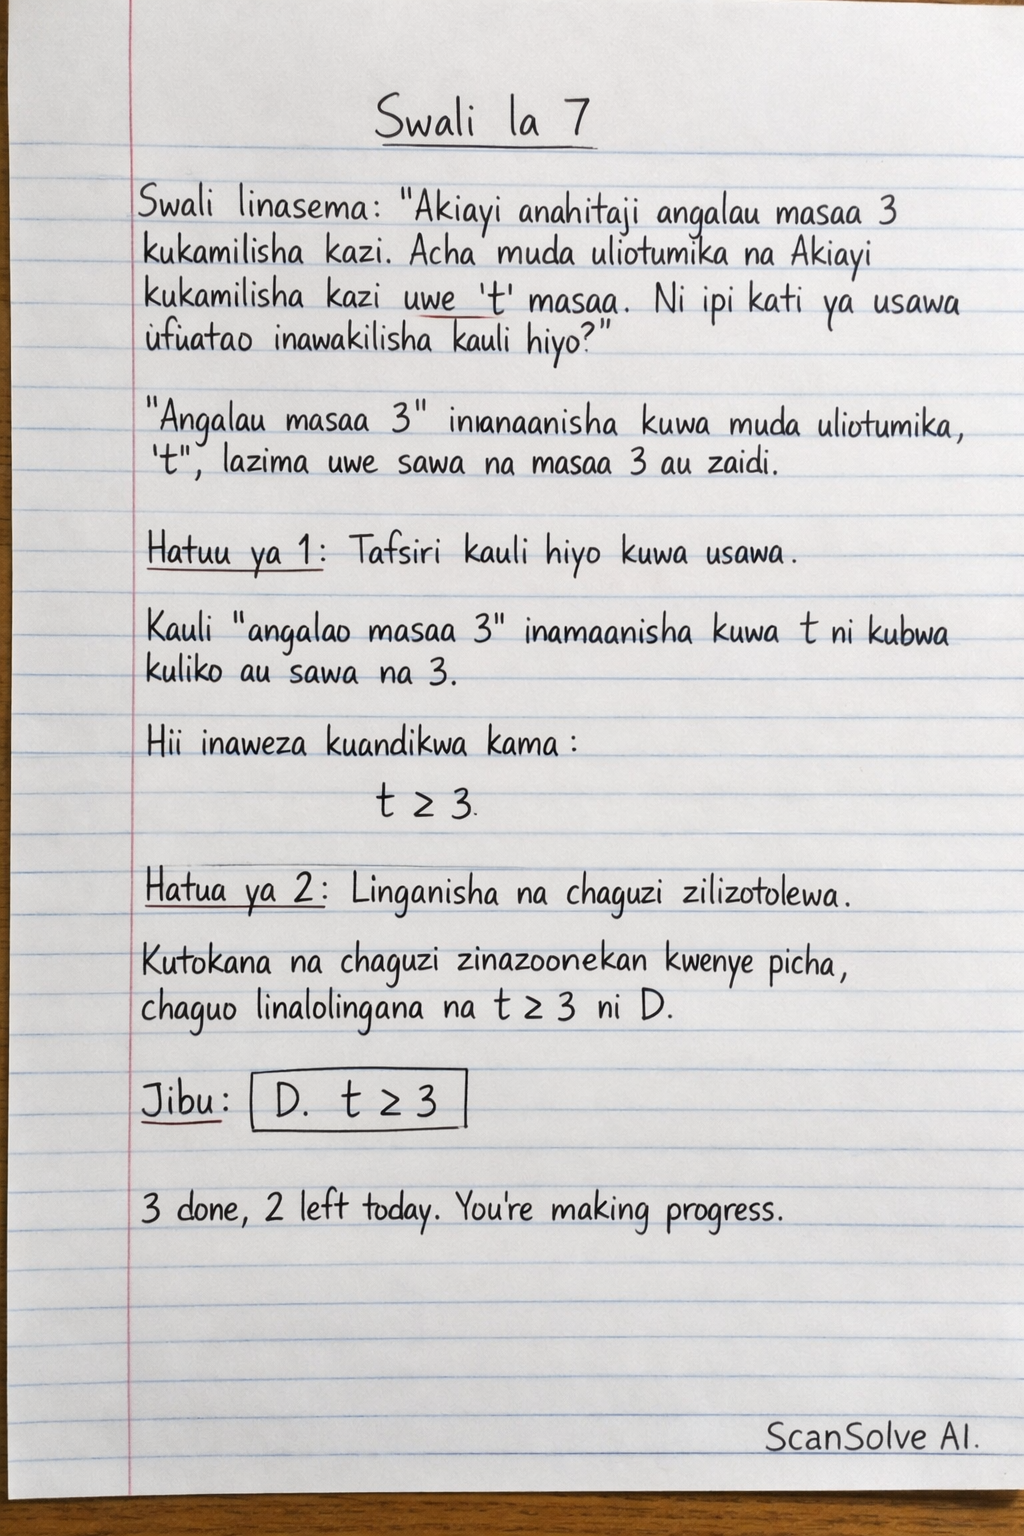 Swali la 7
Swali linasema: "Akiayi anahitaji angalau masaa 3
kukamilisha kazi. Acha muda uliotumika na Akiayi
kukamilisha kazi uwe 't' masaa. Ni ipi kati ya usawa
ufuatao inawakilisha kauli hiyo?"
"Angalau masaa 3" inmanaanisha kuwa muda uliotumika,
't", lazima uwe sawa na masaa 3 au zaidi.
Hatuu ya 1: Tafsiri kauli hiyo kuwa usawa.
Kauli "angalao masaa 3" inamaanisha kuwa t ni kubwa
kuliko au sawa na 3.
Hii inaweza kuandikwa kama:
t ≥ 3.
Hatua ya 2: Linganisha na chaguzi zilizotolewa.
Kutokana na chaguzi zinazoonekan kwenye picha,
chaguo linalolingana na t ≥ 3 ni D.
Jibu: D. t ≥ 3
3 done, 2 left today. You're making progress.
ScanSolve AI.